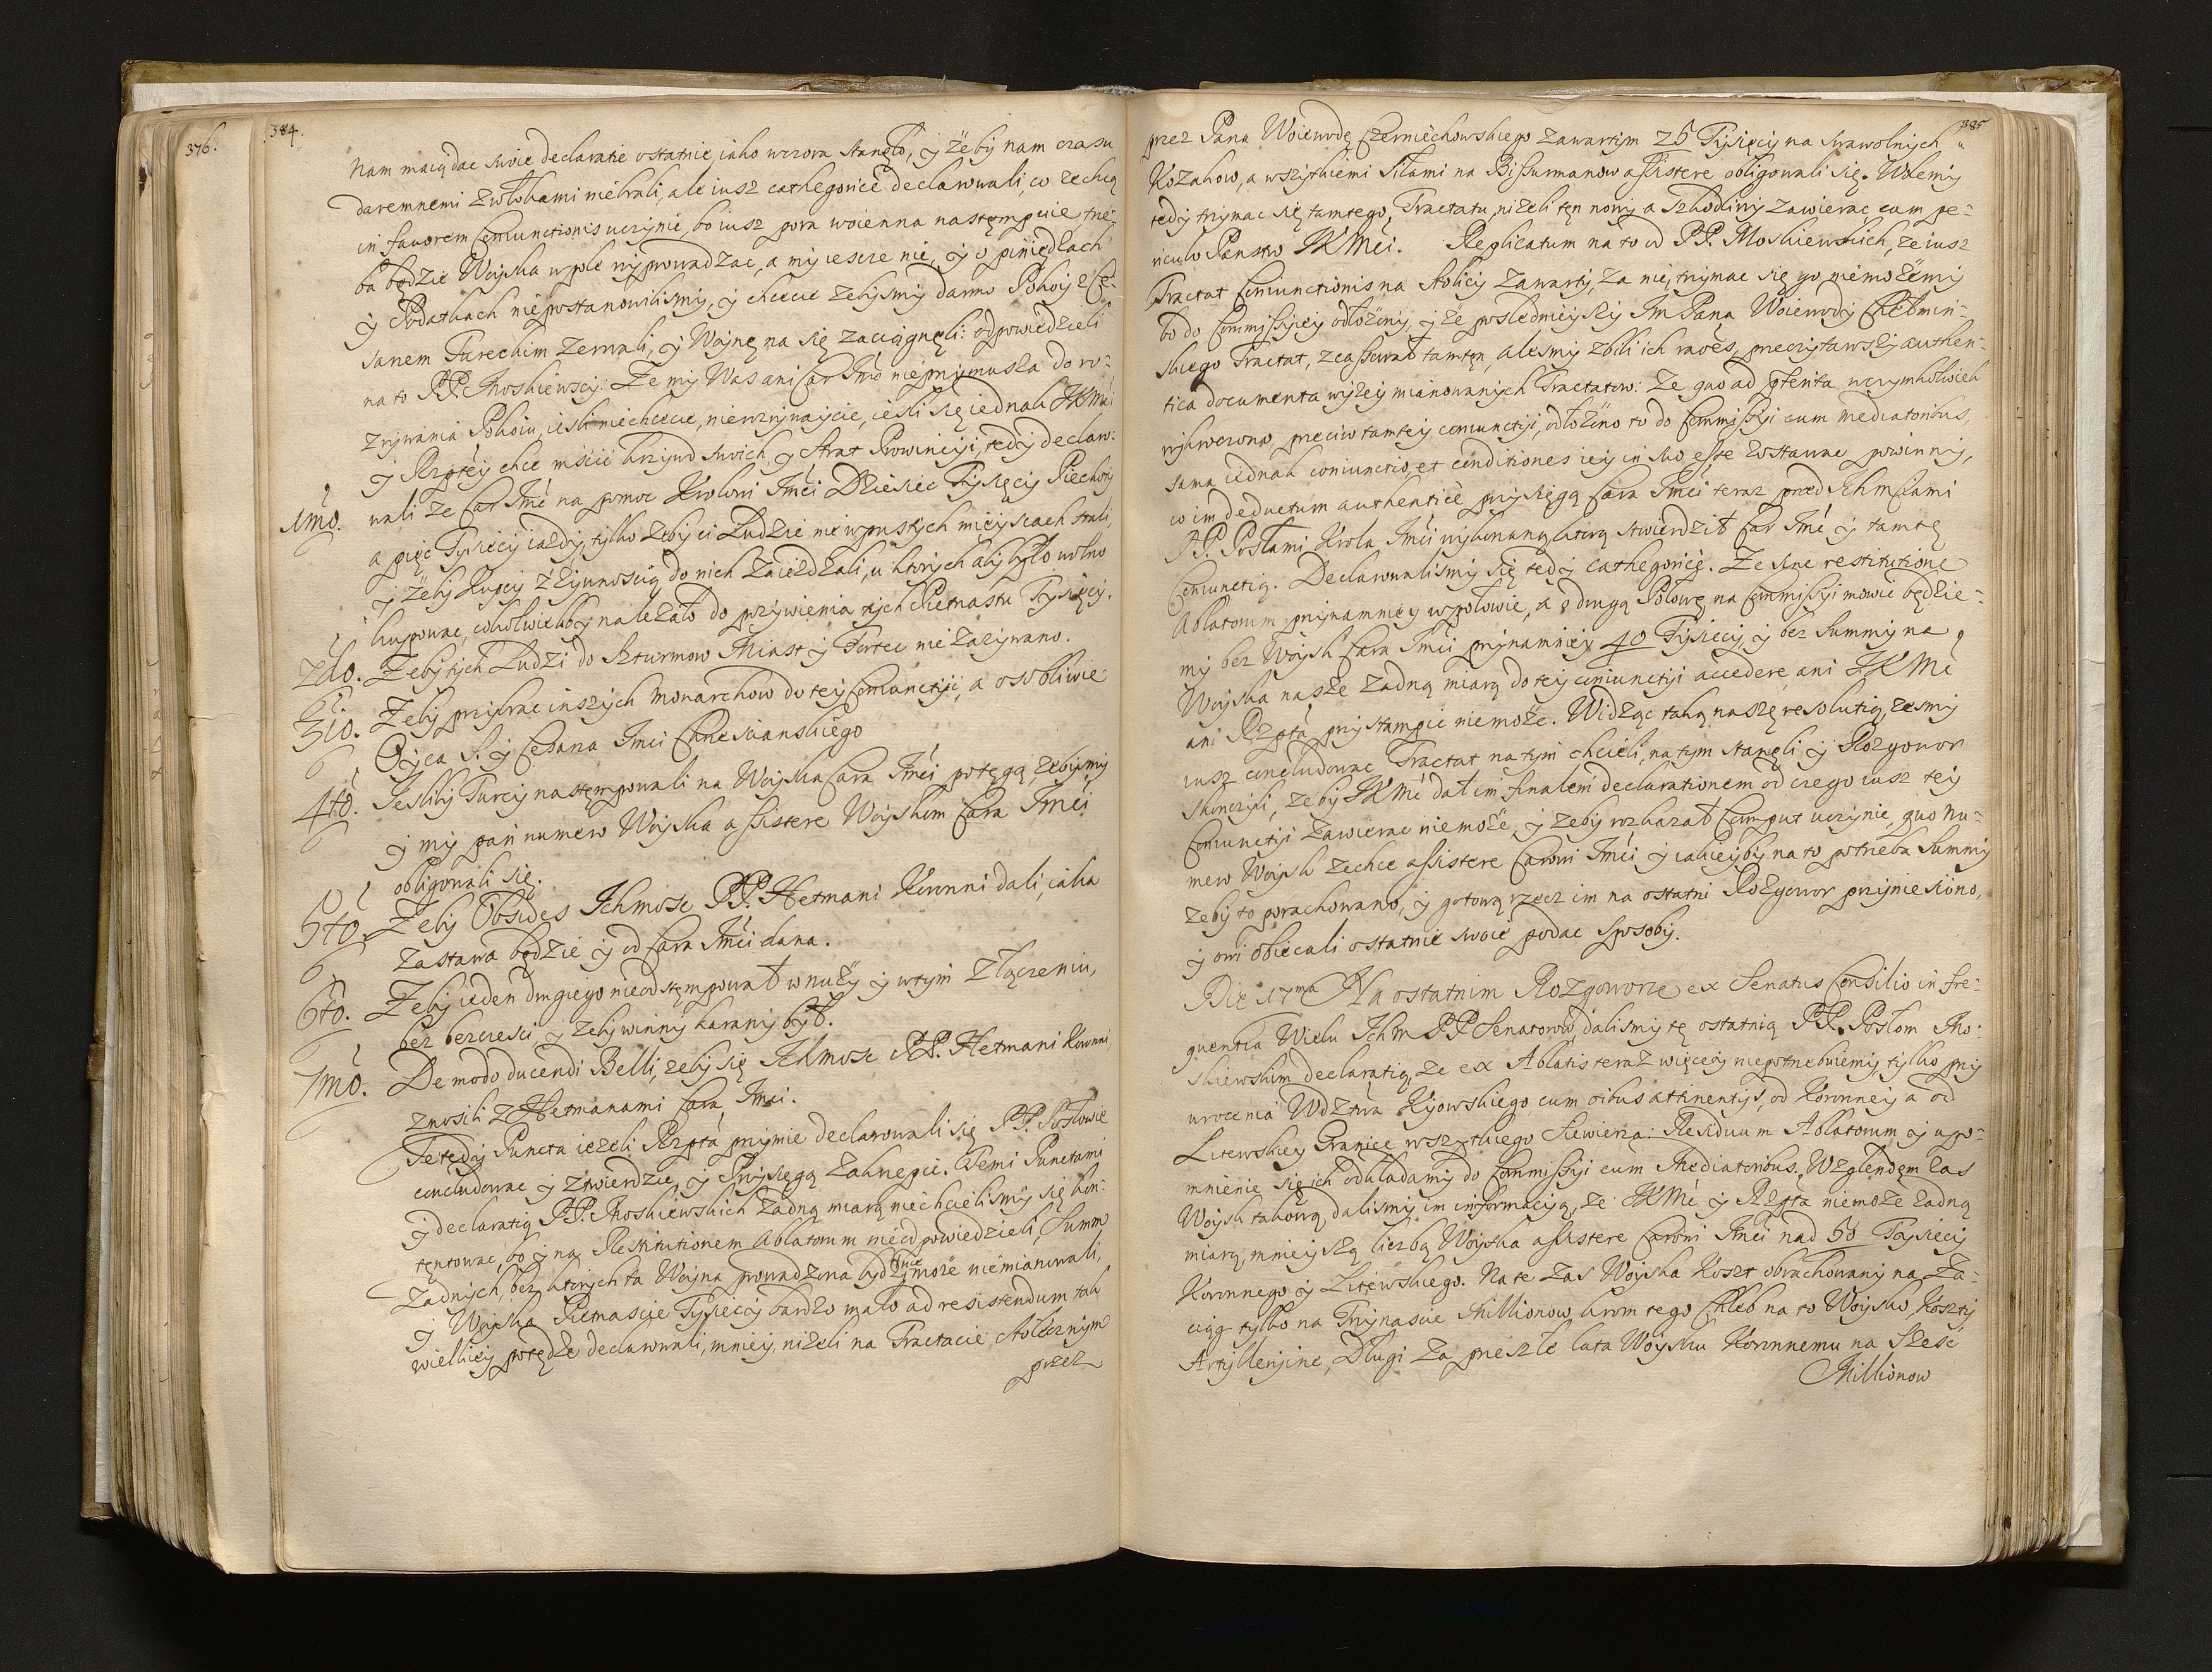 376.
384.
Nam maią dac swoie declaratie ostatnie, iako wczora stanęło, y żeby nam czasu
daremnemi zwłokami niebrali, ale iusz cathegoricè declarowali, co zechcą
in favorem Coniunctionis uczynić, bo iusz pora woienna następuie, trze-
ba będzie Woyska w pole wyprowadzac, a my ieszcze nic, y o pieniędzach
y Podatkach niepostanowilismy, y chcecie zebysmy darmo Pokoy z Ce-
sarzem Tureckim zerwali, y Woynę na się zaciągnęli: odpowiedzieli
na to PP. Moskiewscy: Ze my Was ani Car Jmć nieprzymusza do ro-
zrywania Pokoiu, iesli niechcecie, nierozrywaycie, iesli się iednak JKMć
y Rzptey chce mscic krzywd swoich, y Strat Prowincyi, tedy declaro:
1mo. wali ze Car Jmć na pomoc Krolowi Jmći Dziesiec Tysięcy Piechoty
a pięc Tysiecy iazdy, tylko zeby ci Ludzie nie w pustych mieyscach stali,
y żeby Kupcy z żywnoscią do nich zaiezdzali, u ktorych aby było wolno
kupowac, cokolwiekby nalezało do pozywienia tych Pietnastu Tysięcy.
2do. Zeby tych Ludzi do Szturmow Miast y Fortec nie zazywano.
3io. Zeby przybrac inszych Monarchow do tey Coniunctiji, a osobliwie
Oyca S. y Cesarza Jmci Chrzescianskiego
4to. Iesliby Turcy następowali na Woyska Cara Jmći potęgą, zebysmy
y my pari numero Woyska assistere Woyskom Cara Jmći
obligowali się.
5to. Zeby Obsides Ichmosc PP. Hetmani Koronni dali, iaka
zastawa będzie y od Cara Jmći dana.
6to. Zeby ieden drugiego nieodstępował w nuży y w tym złączeniu,
bez bezczesci, y zeby winny karany był.
7mo. De modo ducendi Belli, zeby się Ichmosc PP. Hetmani Koronni,
znosili z Hetmanami Cara Jmci.
Te tedy Puncta iezeli Rzpta przyimie declarowali się PP. Posłowie
concludowac y ztwierdzic, y Przysięgą zakrzepic. Temi Punctami
y declaratią PP. Moskiewskich żadną miarą niechcielismy się kon-
tentowac, bo y na Restitutionem Ablatorum nieodpowiedzieli, Summ
żadnych, bez ktorych ta Woyna prowadzona bydz niemoże niemianowali,
y Woyska Pietnascie Tysiecy bardzo mało ad resistendum tak
wielkiey potędze declarowali, mniey, nizeli na Tractacie Stołecznym
przez
385
przez Pana Woiewodę Czerniechowskiego zawartym 25 Tysięcy na swawolnych
Kozakow, a wszytkiemi siłami na Bissurmanow assistere obligowali się. Wolemy
tedy trzymac się tamtego Tractatu, niżeli ten nowy a szkodliwy zawierac cum pe-
riculo Panstw JKMći. Replicatum na to od PP. Moskiewskich, ze iusz
Tractat Coniunctionis na Stolicy zawarty, za nic, trzymac się go niemożemy
bo do Commissiyey odłożony, y że poslednieyszy Jm Pana Woiewody Chełmin-
skiego Tractat, zcassował tamten, alesmy zbili ich raoēs, przeczytawszy authen-
tica documenta wyzey mianowanych Tractatow: Ze quo ad pterita w czymkolwiek
wykroczono, przeciw tamtey coniunctiji, odłożono to do Commissiji cum mediatoribus,
sama iednak coniunctio, et conditiones iey in suo esse zostawac powinny,
co im deductum authenticè przysięgą Cara Jmći teraz przed Ichmciami
PP. Posłami Krola Jmći wykonaną, ktorą stwierdził Car Jmć y tamtę
Coniunctią. Declarowalismy się tedy cathegoricè. Ze sine restitutione
Ablatorum przynamniey w połowie, a o drugą Połowę na Commissiji mowic będzie-
my bez Woysk Cara Jmći przynamniey 40 Tysiecy, y bez Summy na
Woyska nasze żadną miarą do tey coniunctiji accedere, ani JKMć
ani Rzpta przystampic niemoże. Widząc taką naszę resolutią, zesmy
iusz concludowac Tractat na tym chcieli, na tym stanęli y Rozgowor
skonczyli, żeby JKMć dał im finalem declarationem od czego iusz tey
Coniunctiji zawierac niemoże, y zeby rozkazał Comput uczynic, quo nu-
mero Woysk zechce assistere Carowi Jmći y iakieyby na to potrzeba Summy
żeby to porachowano, y gotową rzecz im na ostatni Rozgowor przyniesiono,
y oni obiecali ostatnie swoie podac sposoby.
Die 17ma Na ostatnim Rozgoworze ex Senatus Consilio in fre-
quentia Wielu Ichm PP Senatorow, dalismy tę ostatnią PP. Posłom Mo-
skiewskim declaratią, ze ex Ablatis teraz więcey niepotrzebuiemy, tylko przy
wrocenia Wdztwa Kijowskiego cum oibus attinentijs, od Koronney a od
Litewskiey Granice wszytkiego Siewierza: Residuum Ablatorum y upo-
mnienie się ich odkładamy do Commissiji cum Mediatoribus. Względem zas
Woysk takową dalismy im informacyą, ze JKMć y Rzpta niemoże żadną
miarą mnieyszą liczbą Woyska assistere Carowi Jmći nad 50 Tysiecy
Koronnego y Litewskiego. Na te zas Woyska koszt obrachowany na za-
ciąg tylko na Trzynascie Millionow krom tego Chleb na to Woysko, koszty
Artylleryine, Długi za przeszłe lata Woysku Koronnemu na Szesc
Millionow